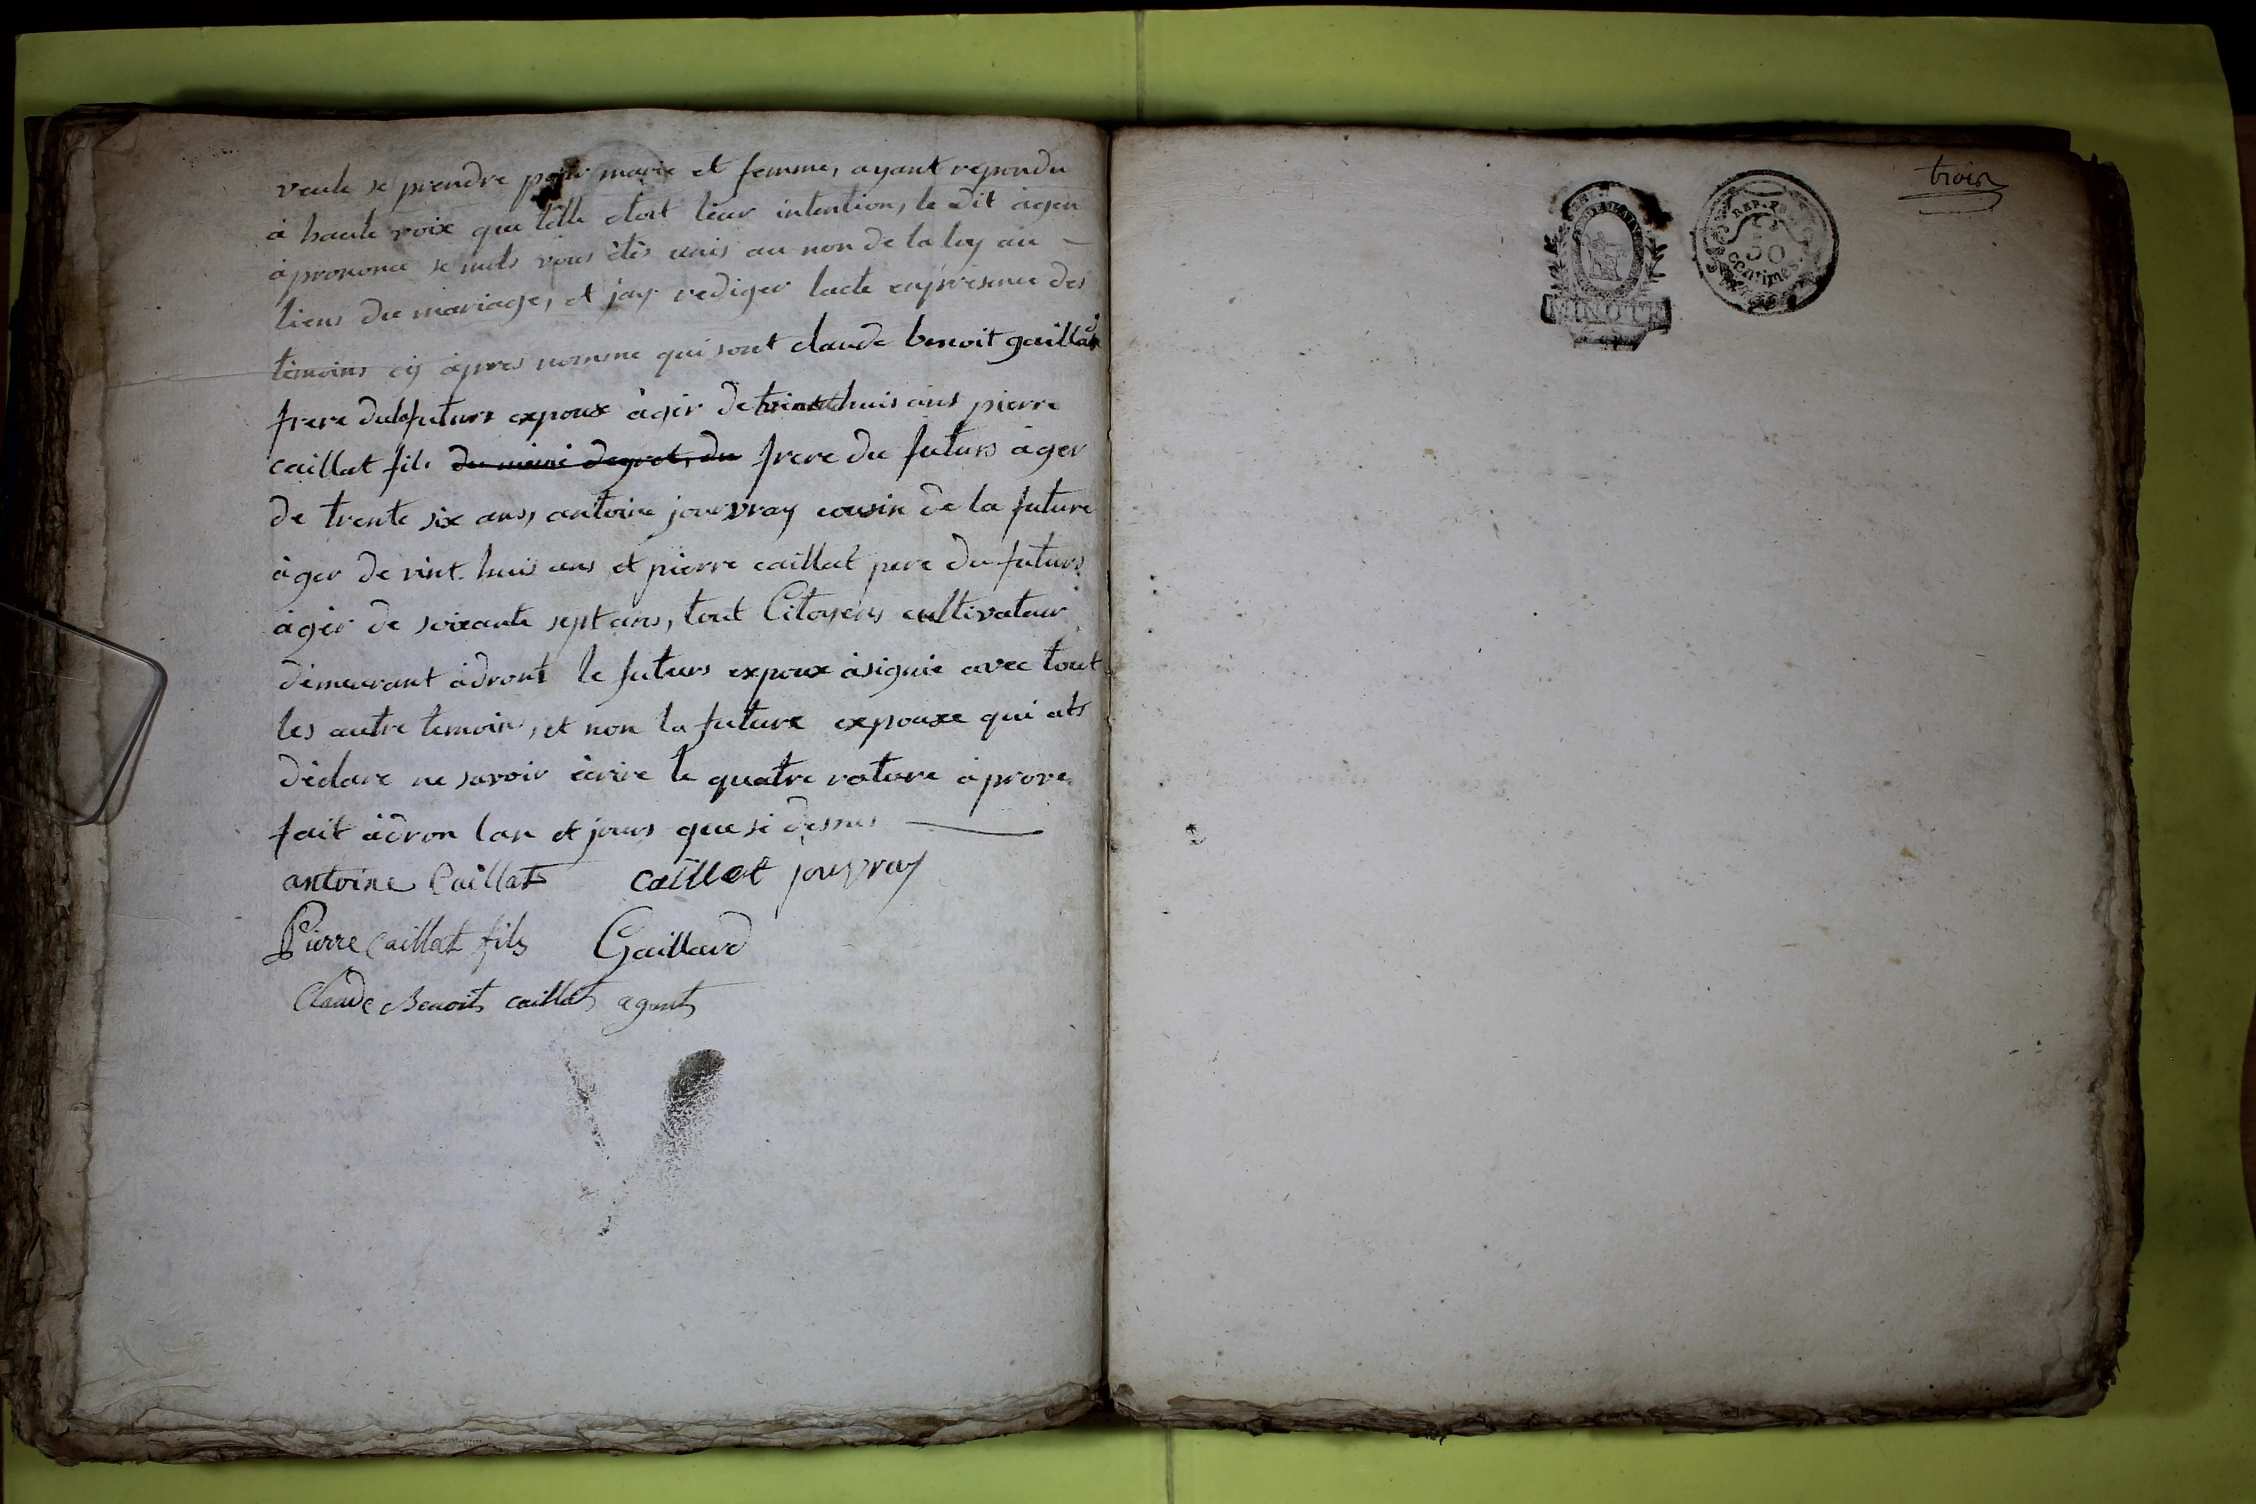 veule se prendre pour marie et femme, ayant repondu
à haute voix que telle etoit leur intention, le dit àgen
àprononcé se mots vous étès unis au non de la loy au
liens du mariage, et jay rediger lacte enpresence des
temoins cy àpres nomme qui sont claude benoit gaillard
frere futurs expoux àgér de huis ans pierre
caillat fils du meme degret, du frere du futurs àger
de trente six ans, antoine jouvray cousin de la future
àger de vint huis ans et pierre caillat pere du futurs
àgér de soixante sept ans, tout Citoyens cultivateur
demeurant àdront le futurs expoux àsignié avec tout
les autre temoin, et non la future expouxe qui ats
déclare ne savoir écrire le quatre rature àprové
fait àdron lan et jours que si dessus
antoine Caillat caillat jouvray
Pierre Caillat fils Gaillard
Claude Benoit caillat agent
trois
REP. FRA
50
centimes
MINUTE